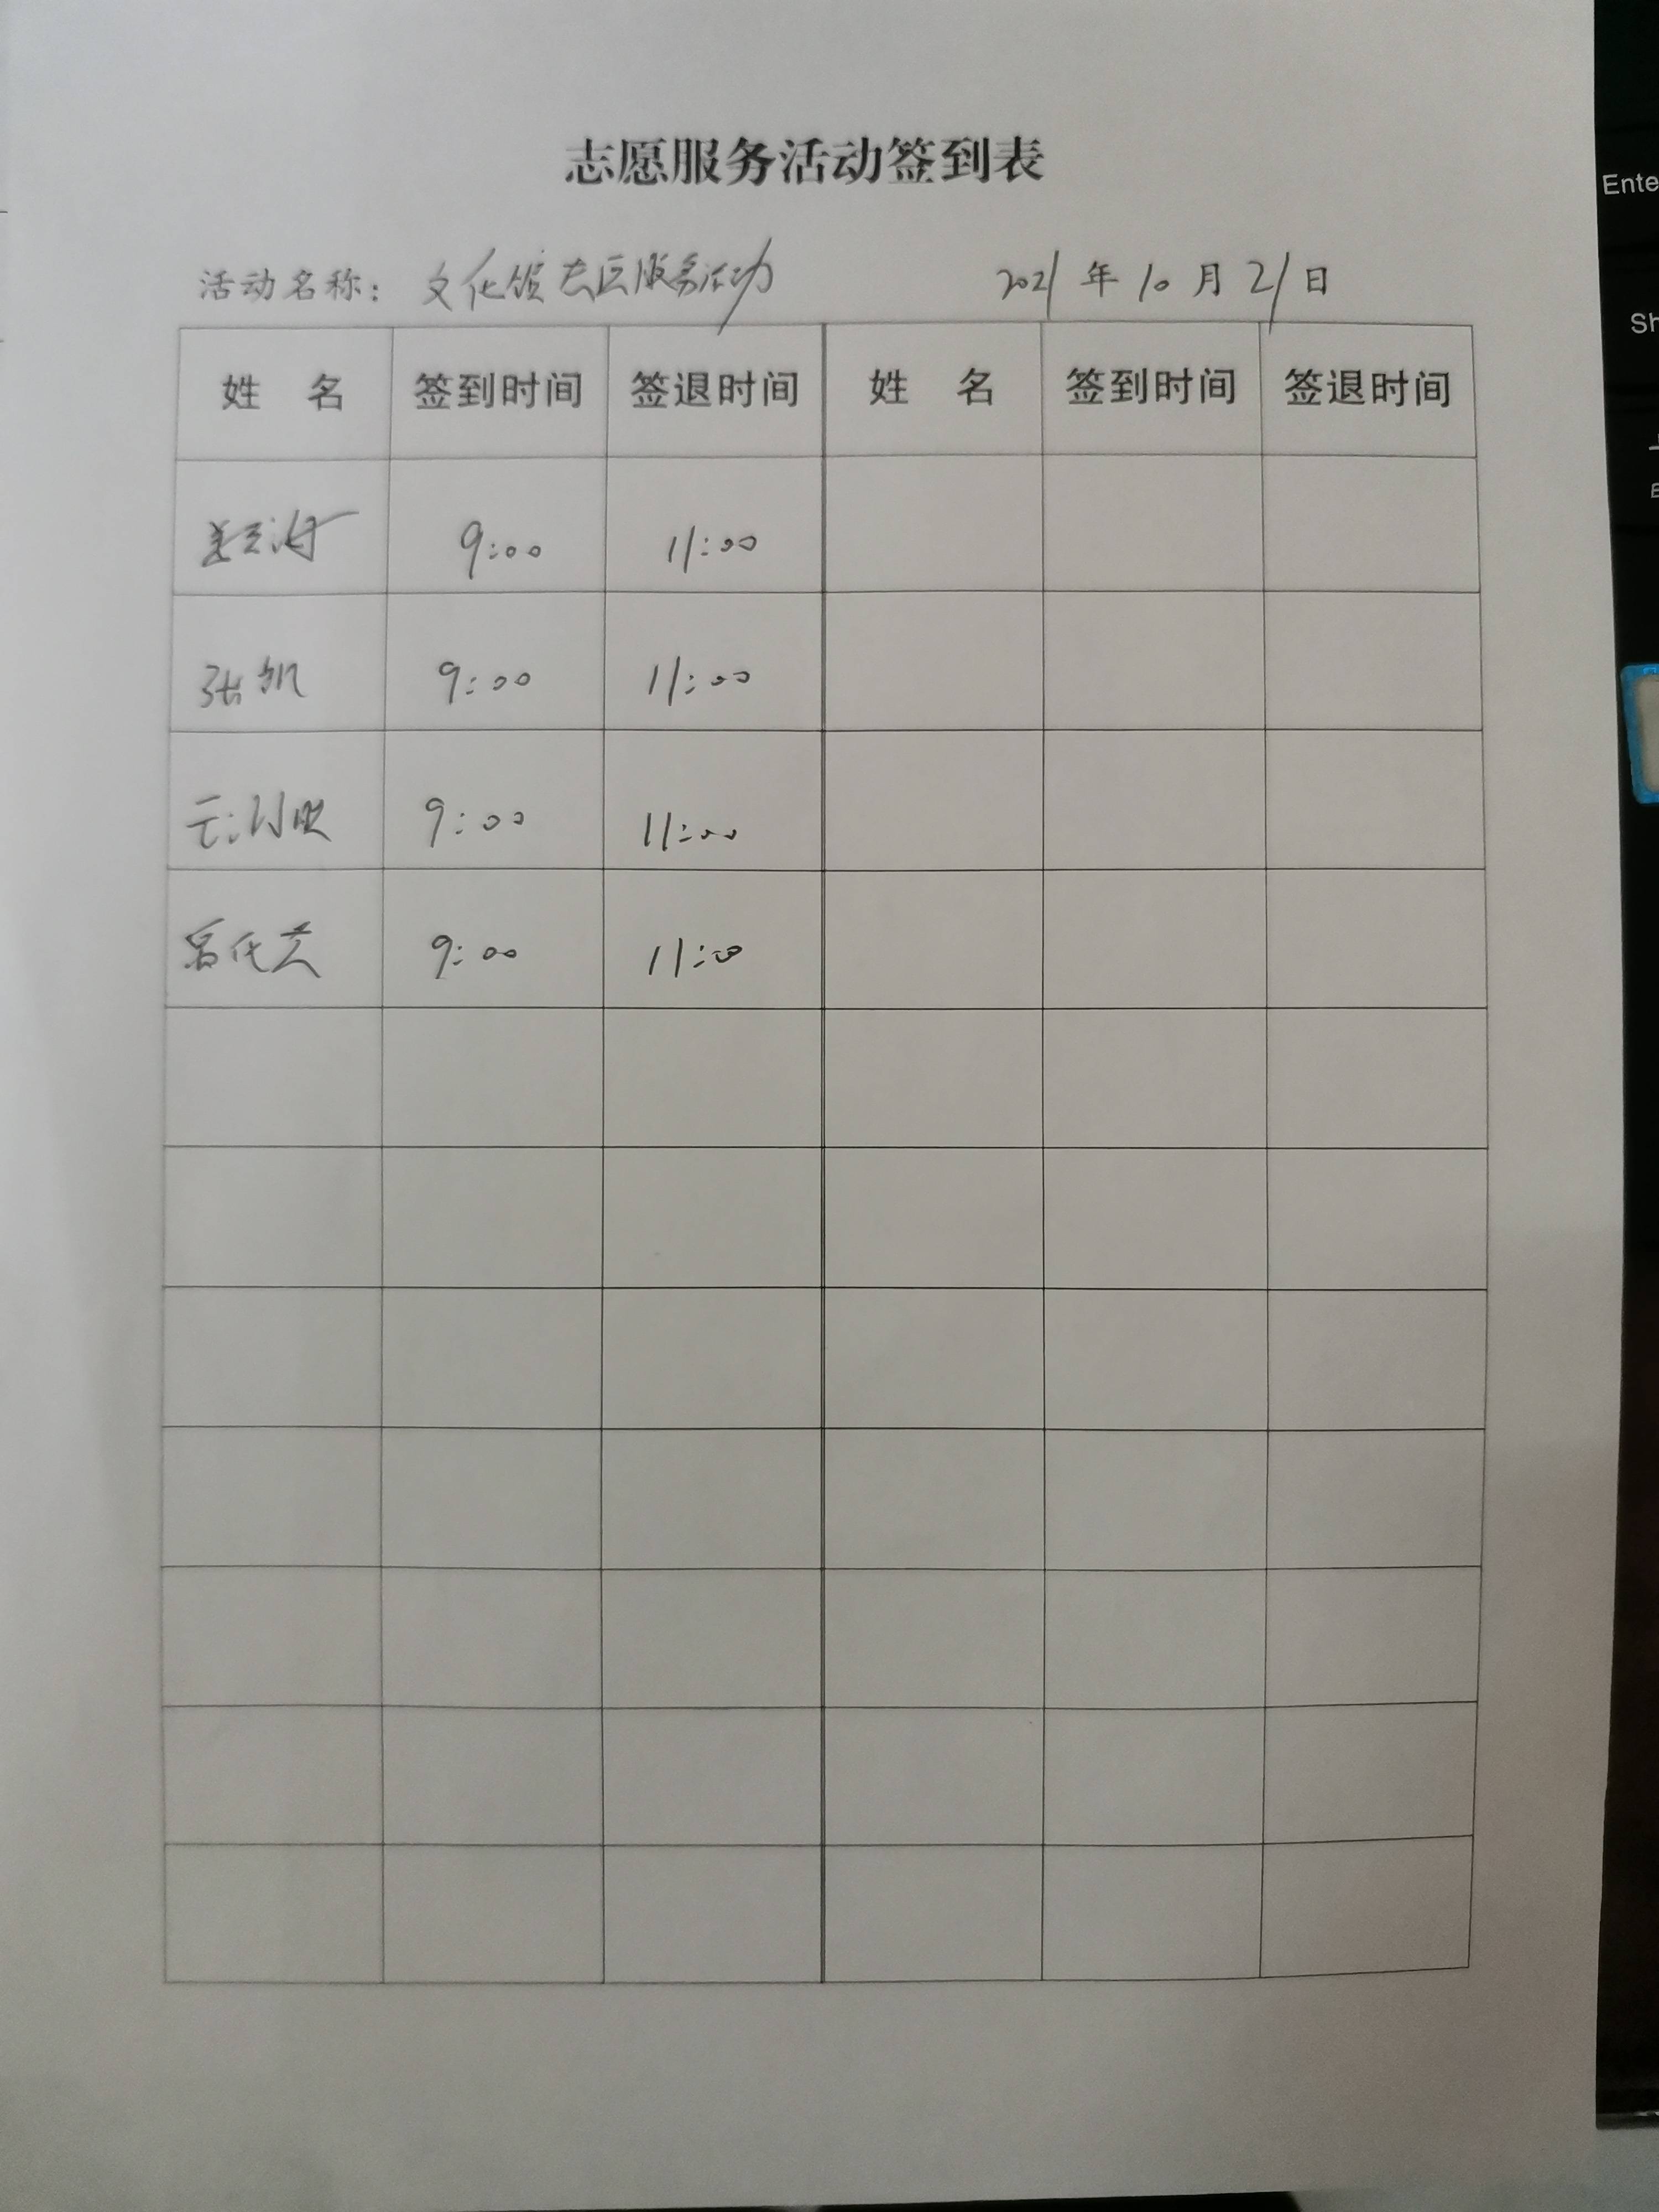 志愿服务活动签到表
活动名称：文化馆志愿服务活动 2021年10月21日
姓 名 签到时间 签退时间 姓 名 签到时间 签退时间
9:00 11:00
张凯 9:00 11:00
9:00 11:00
9:00 11:00
Ente
Sh